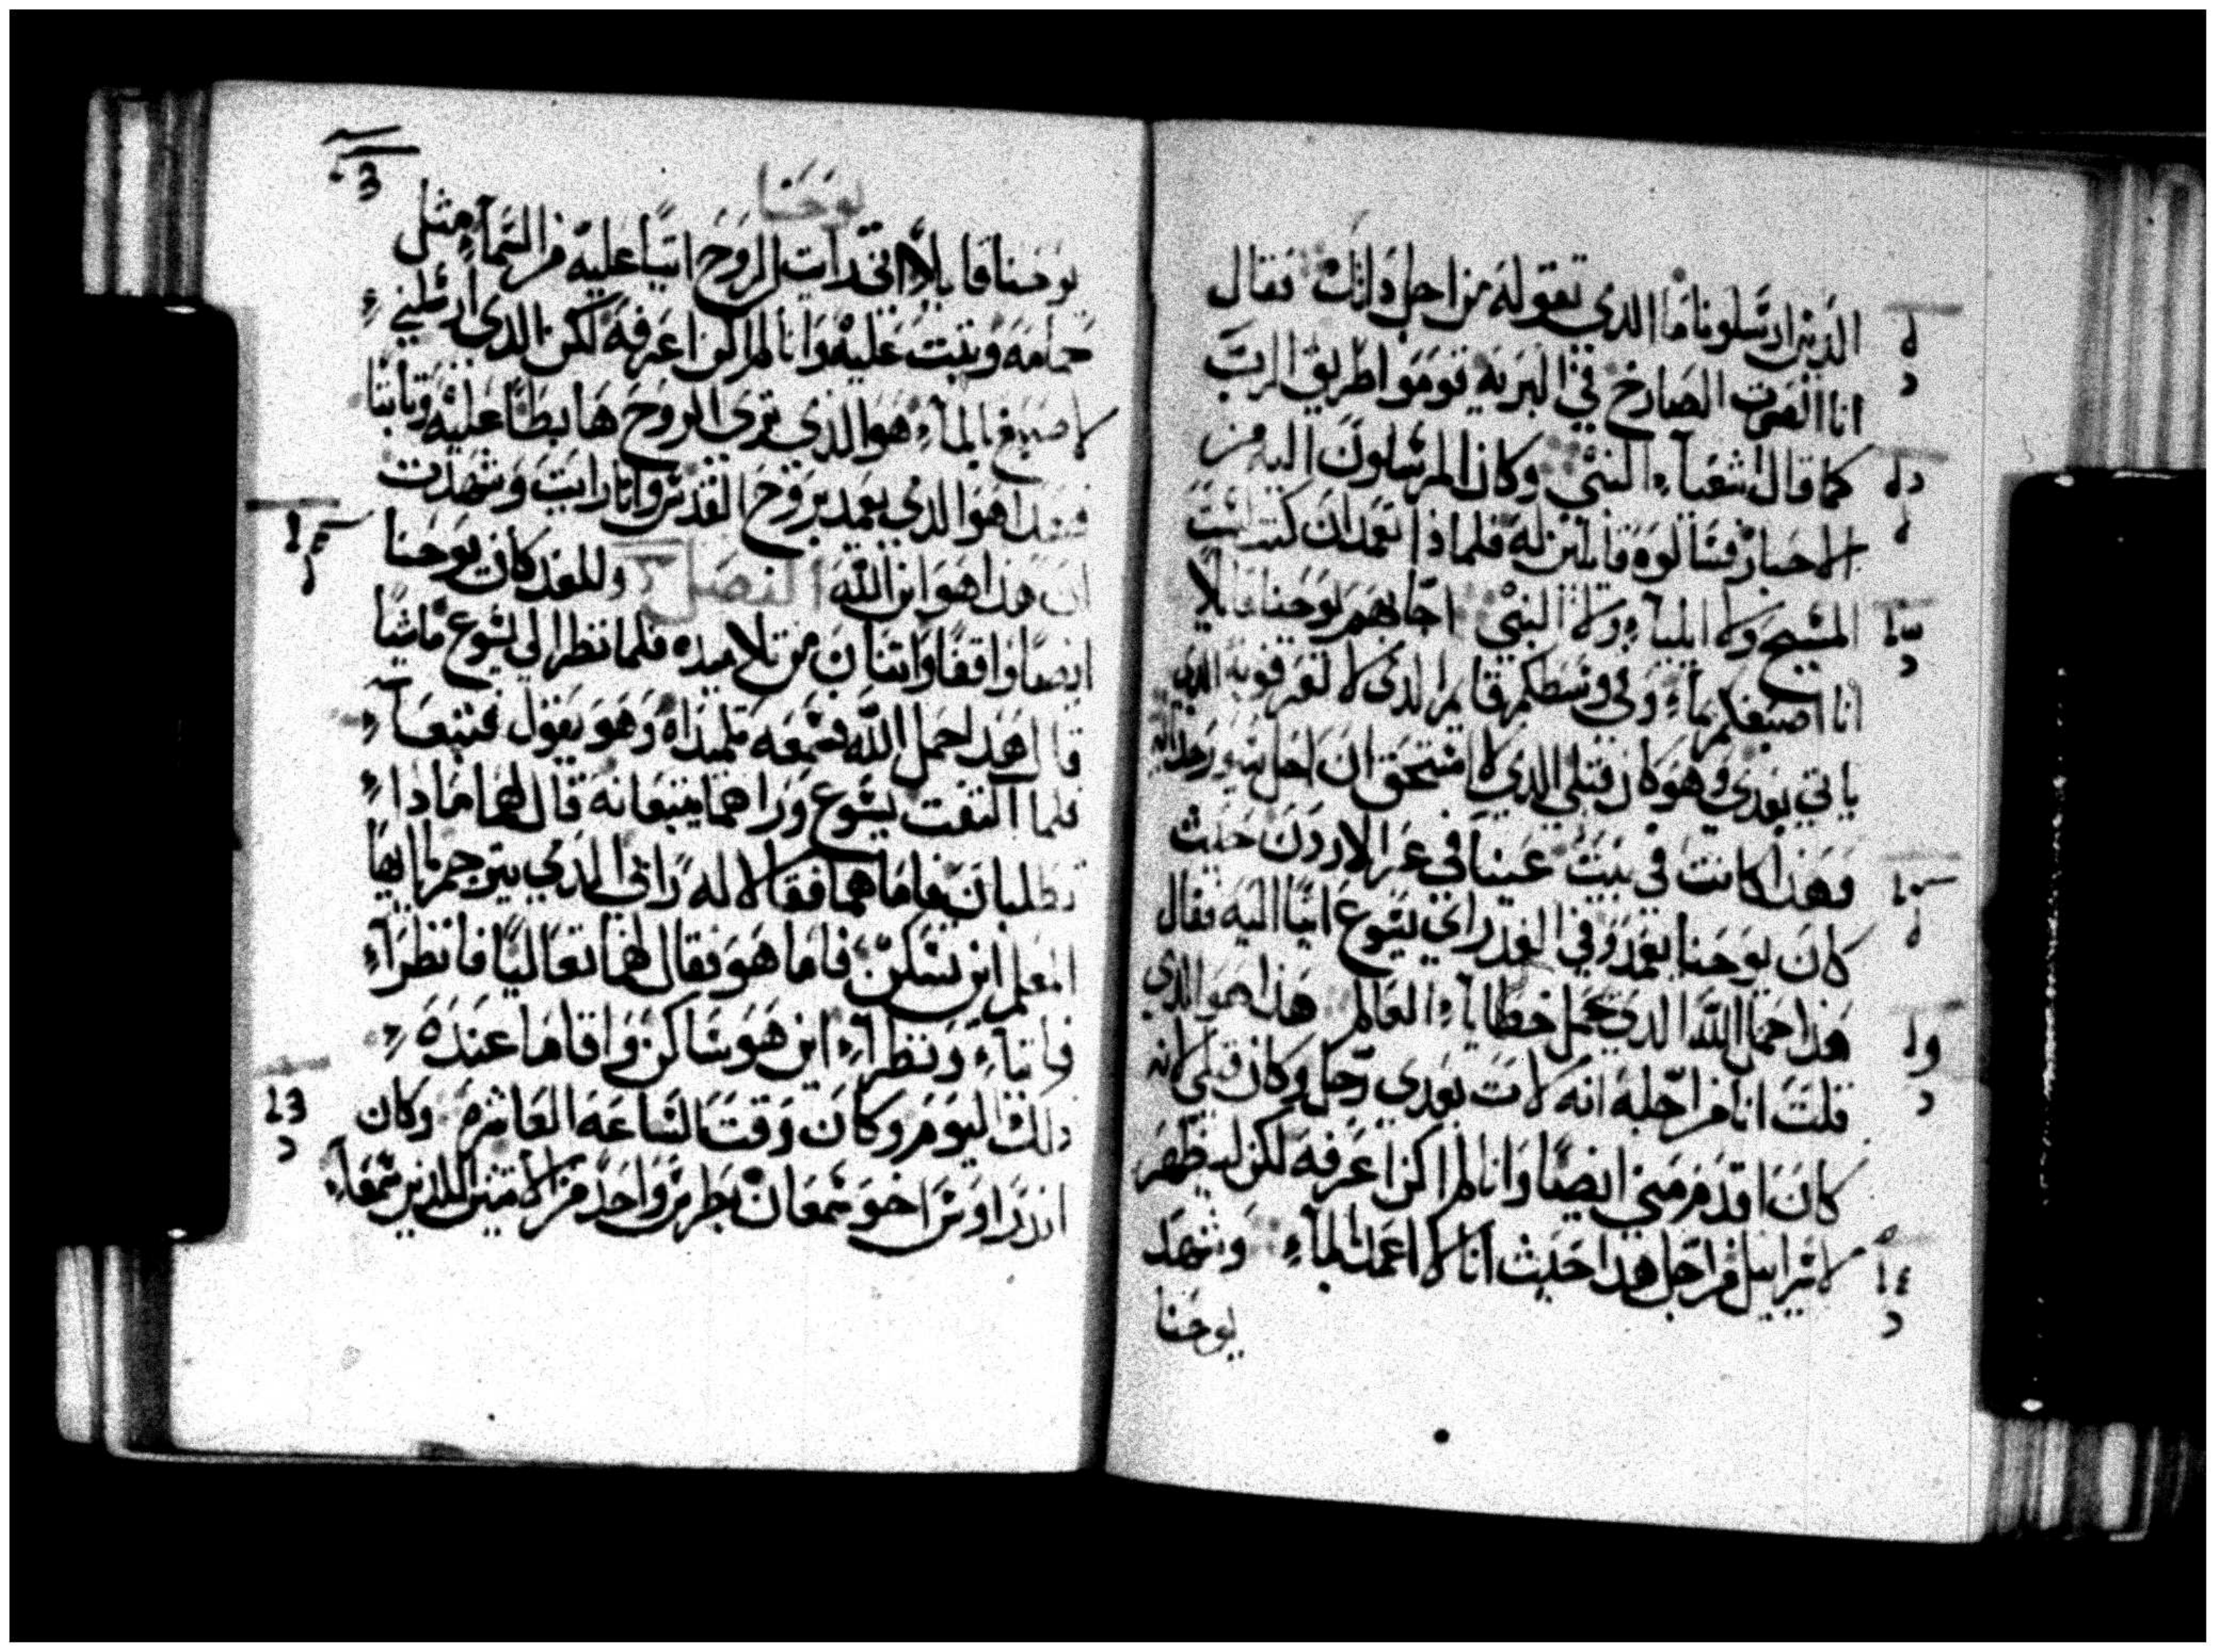 الذين ارسلونا ما الذي تقوله من اجل ذلك فقال
انا الصوت الصارخ في البريه قوموا طريق الرب
كما قال اشعياء النبي وكان المرسلون اليه من
الاحبار فسالوه قايلين له فلماذا تعمد ان كنت لست
المسيح ولا ايلياء ولا النبي اجابهم يوحنا قايلا
انا اصبغكم بماء وفي وسطكم قايم الذي لا تعرفونه الذي
ياتي بعدي وهو كان قبلي الذي لا استحق ان احل سيور حداه
وهذا كانت في بيت عنيا في عبر الاردن حيث
كان يوحنا يعمد وفي الغد راي يسوع اتيا اليه فقال
هذا حمل الله الذي يحمل خطاياء العالم هذا هو الذي
قلت انا من اجله انه لات بعدي رجل وكان قبلي لانه
كان اقدم مني ايضا وانا لم اكن اعرفه لكن ليظهر
لاسراييل من اجل هدا حيث انا لاعمد بالماء وشهد
يوحنا
يوحنا
يوحنا قايلا اني رايت الروح اتيا عليه من السماء مثل
حمامه وثبت عليه وانا لم اكن اعرفه لكن الذي ارسلني
لاصبغ بالماء هو الذي ترى الروح هابطا عليه وثابتا
فهذا هو الذي يعمد بروح القدس وانا رايت وشهدت
ان هذا هو ابن الله الفصل وللغد كان يوحنا
ايضا واقفا واثنان من تلاميذه فلما نظر الى يسوع ماشيا
قال هذا حمل الله فسمعه تلميذاه وهو يقول فتبعا
فلما التفت يسوع وراهما يتبعانه قال لهما ماذا
تطلبان فاما هما فقالا له رابي الذي يترجم تاويلها
المعلم اين تسكن فاما هو فقال لهما تعاليا فانظراء
فاتياء ونظراء اين هو ساكن واقاما عنده
ذلك اليوم وكان وقت الساعه العاشره وكان
اندراوس اخو شمعان بطرس واحد من الاثنين اللذين سمعاء